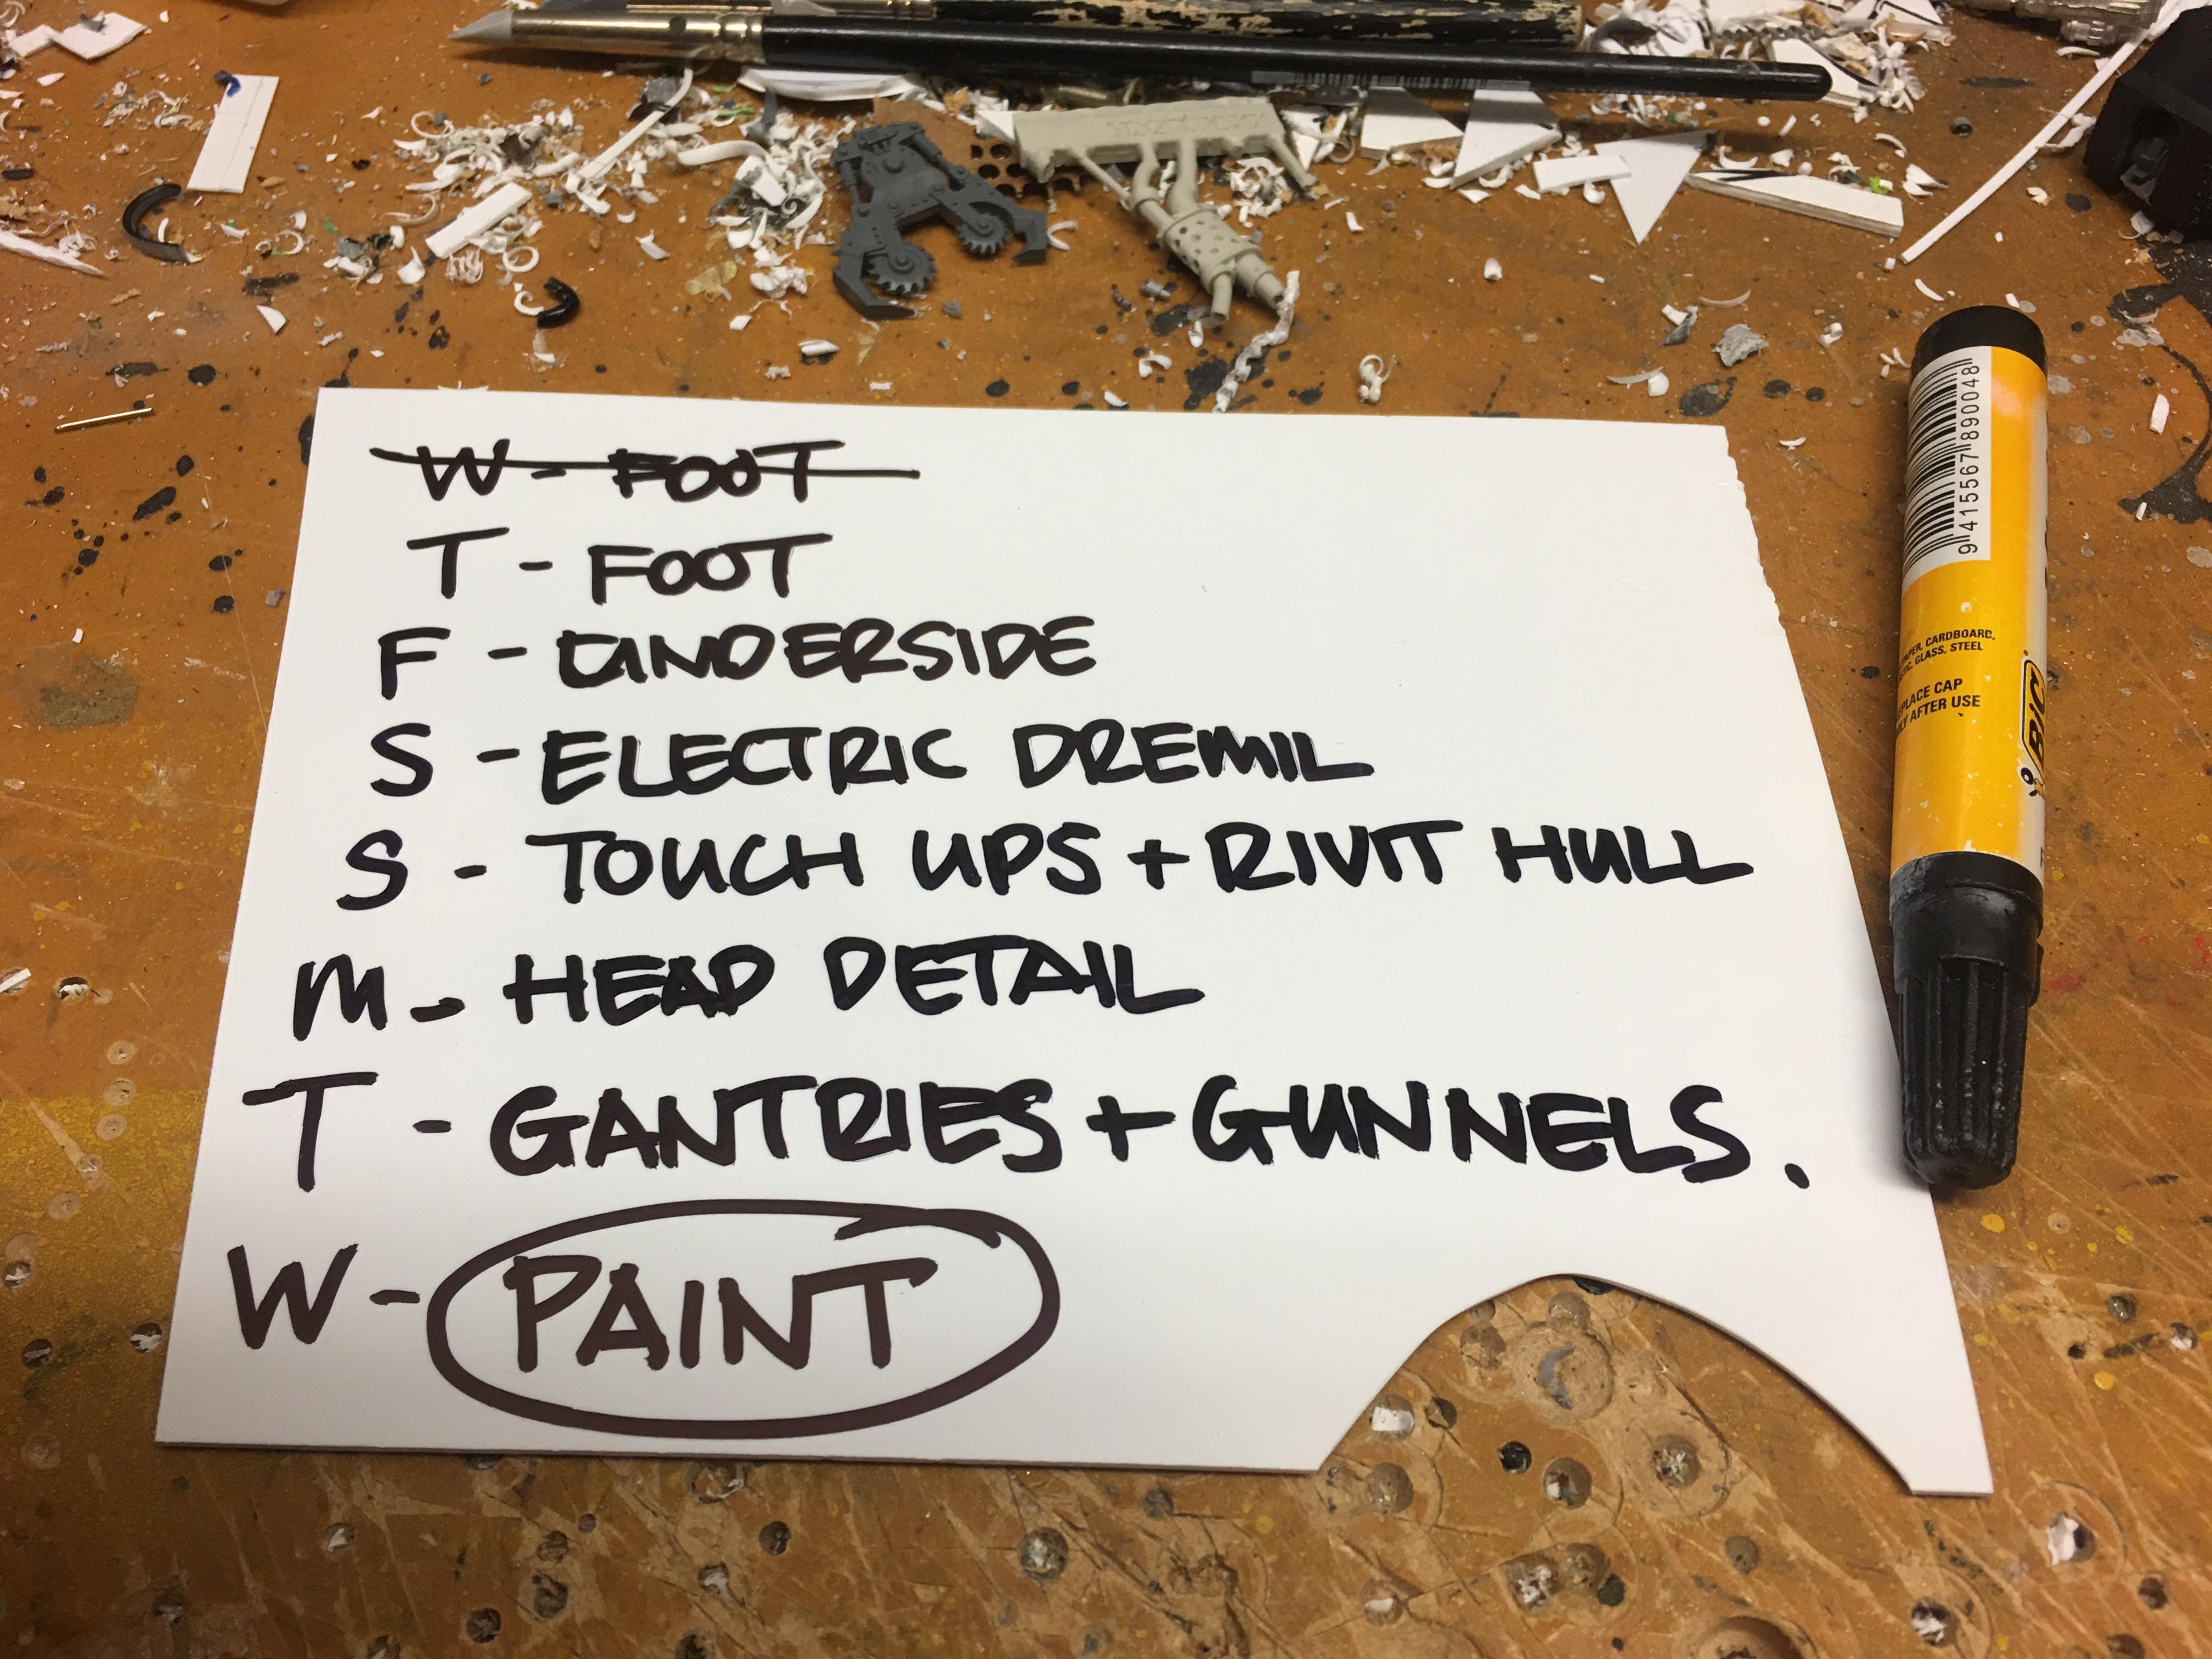 W - FOOT
T - FOOT
F - UNDERSIDE
S - ELECTRIC DREMIL
S - TOUCH UPS + RIVIT HULL
M - HEAD DETAIL
T - GANTRIES + GUNNELS.
W - PAINT
9 415567 890048
CARDBOARD,
GLASS, STEEL
CAP
AFTER USE
BIC